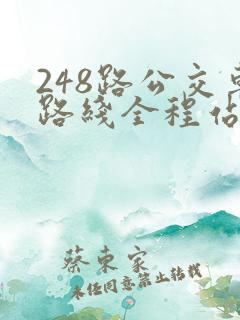 248路公交
路綫全程佔
蔡東家
未经同意禁止转载